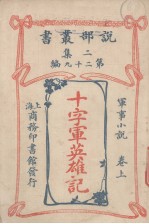 說部叢書
二集
第二十九編
軍事小說 卷上
十字軍英雄記
上海
商務印書館發行